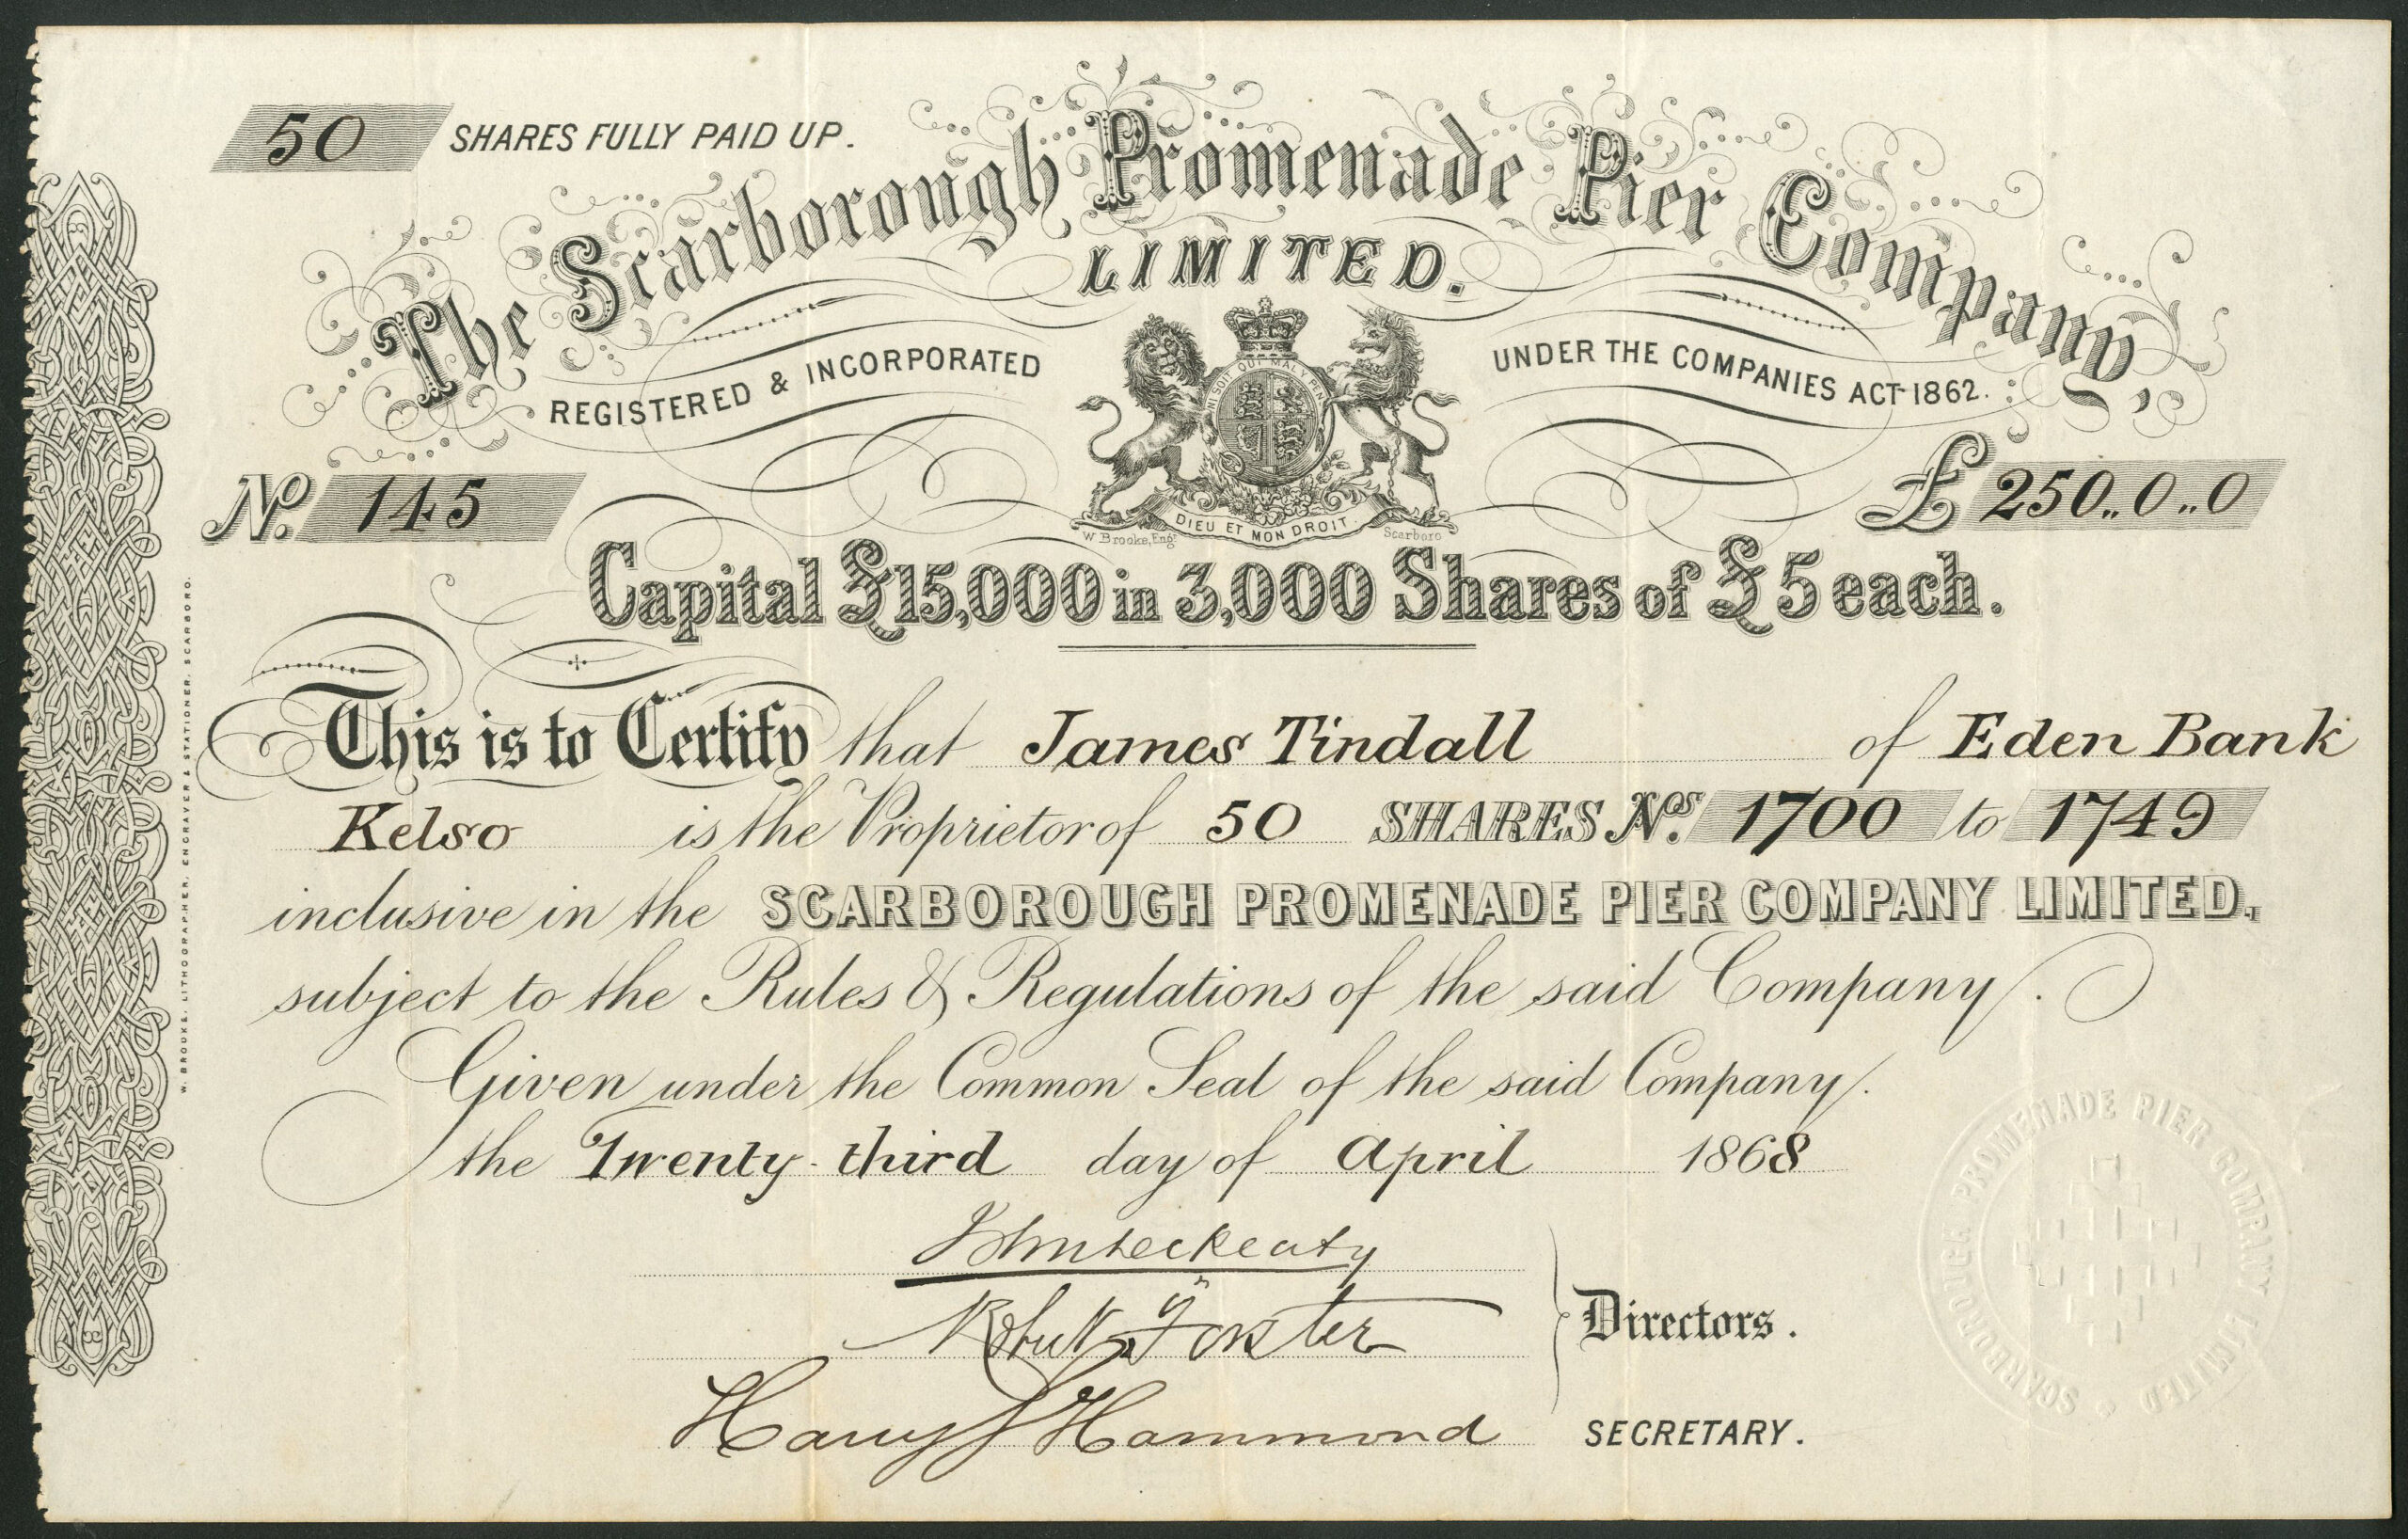 50 SHARES FULLY PAID UP.
The Scarborough Promenade Pier Company,
LIMITED.
REGISTERED & INCORPORATED UNDER THE COMPANIES ACT 1862.
HONI SOIT QUI MAL Y PENSE
DIEU ET MON DROIT
W Brooke, Engr. Scarboro
No. 145 £ 250..0..0
Capital £15,000 in 3,000 Shares of £5 each.
This is to Certify that James Tindall of Eden Bank
Kelso is the Proprietor of 50 SHARES Nos. 1700 to 1749
inclusive in the SCARBOROUGH PROMENADE PIER COMPANY LIMITED,
subject to the Rules & Regulations of the said Company.
Given under the Common Seal of the said Company.
the Twenty-third day of April 1868
Robert Forster
Directors.
Harry J Hammond SECRETARY.
SCARBOROUGH PROMENADE PIER COMPANY LIMITED
W. BROOKE, LITHOGRAPHER, ENGRAVER & STATIONER, SCARBORO.